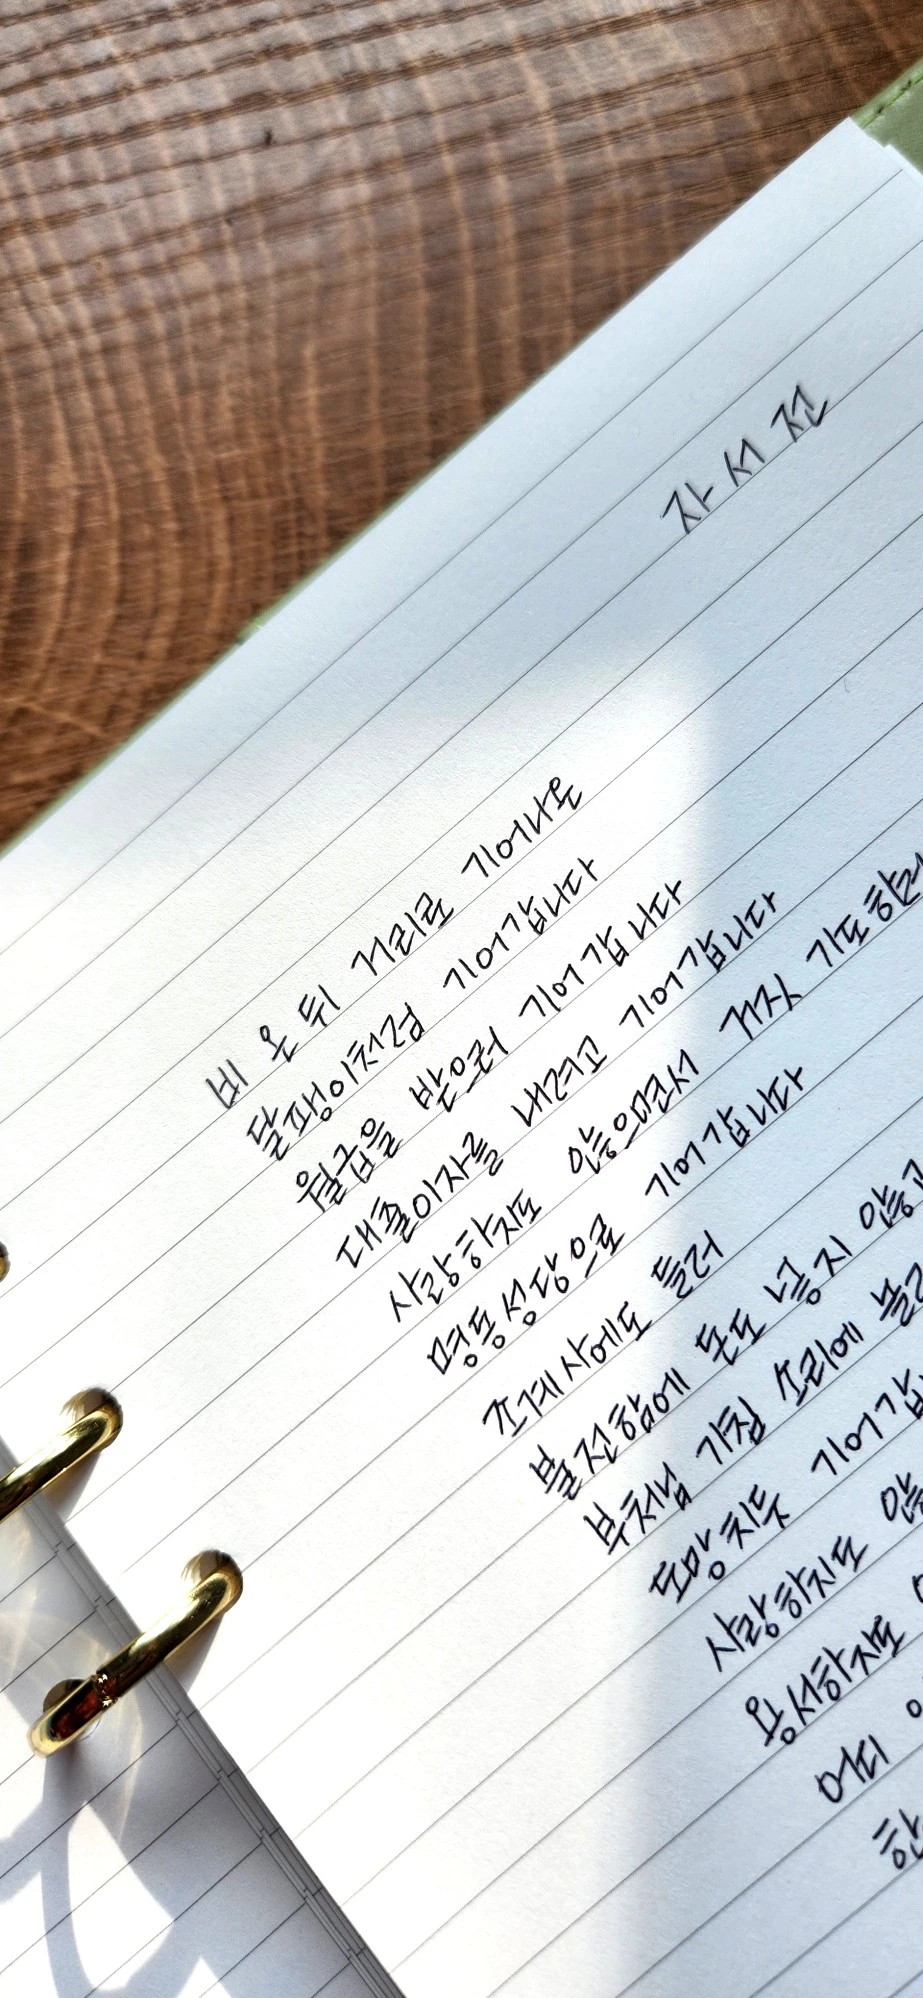 자서전
비 온 뒤 거리로 기어나온
달팽이처럼 기어갑니다
월급을 받으러 기어갑니다
대출이자를 내려고 기어갑니다
사랑하지도 않으면서 거짓 기도하러
명동성당으로 기어갑니다
조계사에도 들러
불전함에 돈도 넣지 않고
부처님 기침 소리에 놀라
도망치듯 기어갑
사랑하지도 않
용서하지도
어디
한